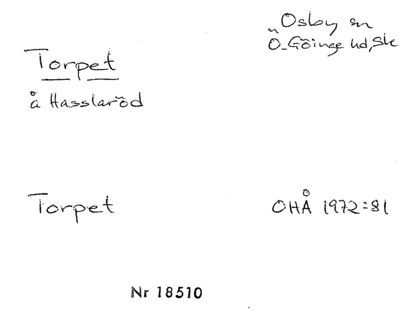 Torpet
å Hasslaröd
Osby sn
Ö-Göinge hd, Sk
Torpet
OHÅ 1972:81
Nr 18510